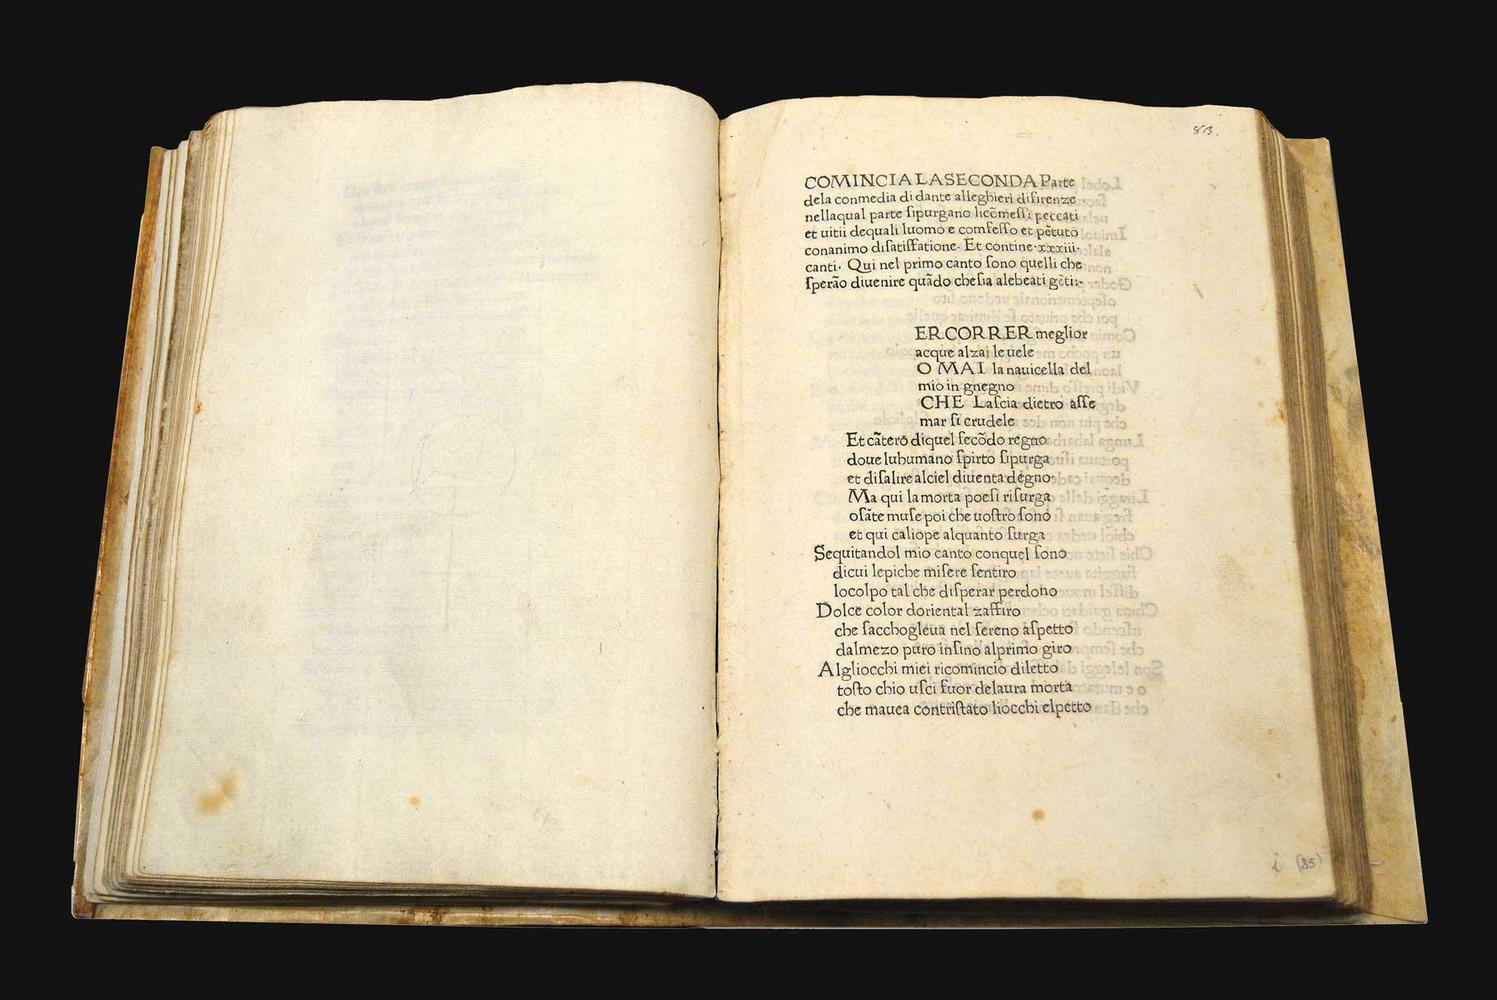 COMINCIA LA SECONDA Parte
dela conmedia di dante alleghieri di firenze
nellaqual parte ſipurgano licõmeſſi peccati
et uitii dequali luomo e comfeſſo et pẽtuto
conanimo diſatiſfatione· Et contine·xxxiii·
canti· Qui nel primo canto ſono quelli che
ſperão diuenire quãdo cheſia alebeati gẽti:·
ER CORRER meglior
acque alzai le uele
O MAI la nauicella del
mio in gnegno
CHE Laſcia dietro aſſe
mar ſi crudele
Et cãterò diquel ſecõdo regno
doue luhumano ſpirto ſipurga
et diſalire alciel diuenta degno·
Ma qui la morta poeſi riſurga
oſãte muſe poi che uoſtro ſono
et qui caliope alquanto ſurga
Sequitandol mio canto conquel ſono
dicui le piche miſere ſentiro
locolpo tal che diſperar perdono
Dolce color doriental zaffiro
che ſacchogleua nel ſereno aſpetto
dalmezo puro inſino alprimo giro
Algliocchi miei ricomincio diletto
toſto chio uſci fuor delaura morta
che mauea contriſtato liocchi elpetto
i (85)